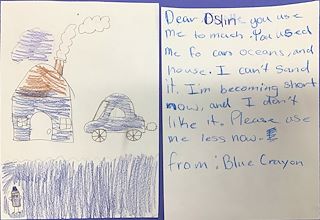 Dear Dslin you use
me to much. You used
me fo cars oceans, and
house. I can't sand
it. I'm becoming short
now, and I don't
like it. Please use
me less now.
from: Blue Crayon